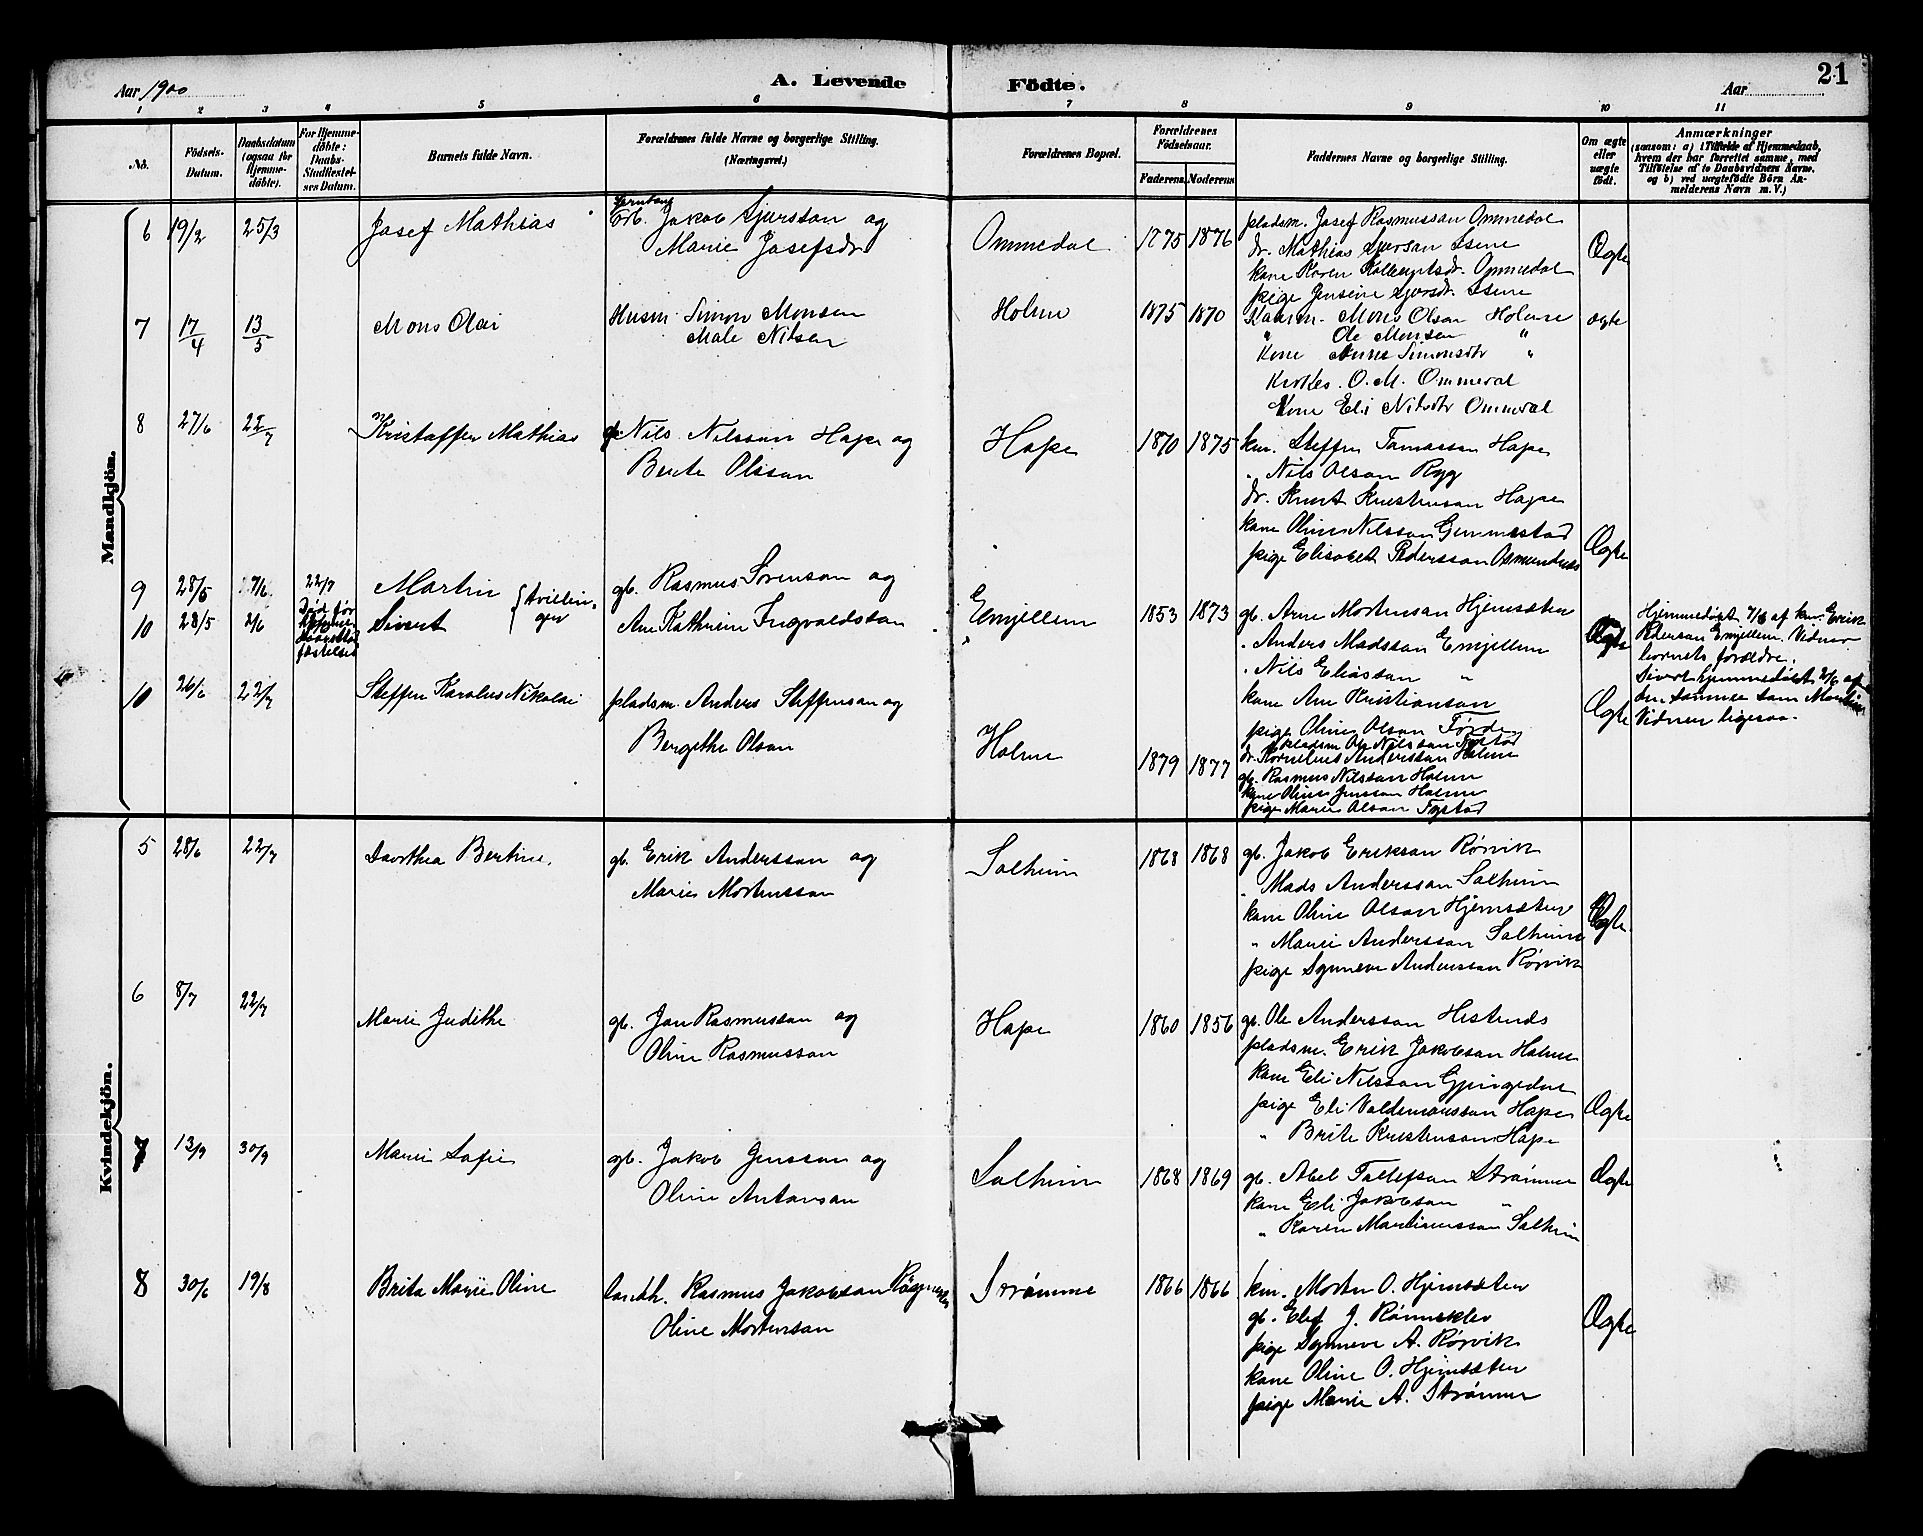 Aar 1900
A. Levende Födte.
Aar
21
1 2 3 4 5 6 7 8 9 10 11
No.
Födsels-Datum.
Daabsdatum (ogsaa for Hjemmedöbte).
For Hjemmedöbte: Daabs-Stadfæstelses Datum.
Barnets fulde Navn.
Forældrenes fulde Navne og borgerlige Stilling. (Næringsvei.)
Forældrenes Bopæl.
Forældrenes Födselsaar.
Faderens. Moderens
Faddernes Navne og borgerlige Stilling.
Om ægte eller uægte født.
Anmærkninger
(saasom: a) i Tilfælde af Hjemmedaab, hvem der har forrettet samme, med Tilföielse af to Daabsvidners Navne. og b) ved uægtefödte Börn Anmelderens Navn m. V.)
Mandkjön.
6 19/2 25/3 Josef Mathias
Jakob Sjursson og
Marie Josefsdr
Ommedal 1875 1876
pladsm. Josef Rasmusson Ommedal
dr. Mathias Sjurson Isene
kone Karen Ommedal
pige Jensine Sjursdr. Isene
Ægte
7 17/4 13/5 Mons Olai
Husm. Simon Monsen
Male Nilsen
Holme 1875 1870
Kaarm. Mons Olsen Holme
" Ole Monsen "
Kone Anne Simonsdtr "
Kirkes. O. M. Ommedal
Kone Eli Nilsdtr Ommedal
ægte
8 27/6 22/7 Kristoffer Mathias
gb. Nils Nilsson Hope og
Berte Olsson
Hope 1870 1875
km. Steffen Tomasson Hope
" Nils Olson Ryg
dr. Knut Kristenson Hope
kone Oline Nilsson Gemmestad
pige Elisabet Pedersson Osmundnes
Ægte
9 28/5 7/6 22/7 Martin
10 28/5 2/6 Sivert
{ tvillinger
gb. Rasmus Sørenson og
Ane Kathrine Ingvaldsson
Emjellem 1853 1873
gb. Arne Mortenson Hjemsæter
" Anders Madsson Emjellem
" Nils Eliasson "
kone Ane Kristianson
pige Oline Olson Førde
Ægte
Hjemmedøbt 7/6 af km. Erik
Pederson Emjellem. Vidner
barnets forældre.
Sivert hjemmedøbt 2/6 af
den samme som Martin
Vidner ligesaa.
10 26/6 22/7 Steffen Karolus Nikolai
pladsm. Anders Steffenson og
Bergithe Olson
Holme 1879 1877
pladsm Ole Nilsson Fystad
dr. Kornelius Andersson Holme
gb. Rasmus Nilsson Holme
kone Oline Jensson Holme
pige Marie Olson Fystad
Ægte
Kvindekjön.
5 28/6 22/7 Dorthea Bertine.
gb. Erik Andersson og
Marie Mortensson
Solheim 1868 1868
gb. Jakob Erikson Rørvik
" Mads Andersson Solheim
kone Oline Olson Hjemsæter
" Marie Andersson Solheim
pige Synneve Andersson Rørvik
Ægte.
6 8/7 22/7 Marie Judithe
gb. Jon Rasmusson og
Oline Rasmusson
Hope 1860 1856
gb. Ole Andersson Hestenes
pladsm. Erik Jakobson Holme
kone Eli Nilsson Gjengedal
pige Eli Valdemarsson Hope
" Brite Kristenson Hope
Ægte
7 13/9 30/9 Marie Sofie
gb. Jakob Jensson og
Oline Antonson
Solheim 1868 1869
gb. Abel Tollefson Strømme
kone Eli Jakobson "
" Karen Martinusson Solheim
Ægte
8 30/6 19/8 Brita Marie Oline
Rasmus Jakobson
Oline Mortenson
Strømme 1866 1866
km. Morten O. Hjemsæter
gb. Elef J. Rønneklev
pige Synneve A. Rørvik
kone Oline O. Hjemsæter
pige Marie A. Strømme
Ægte